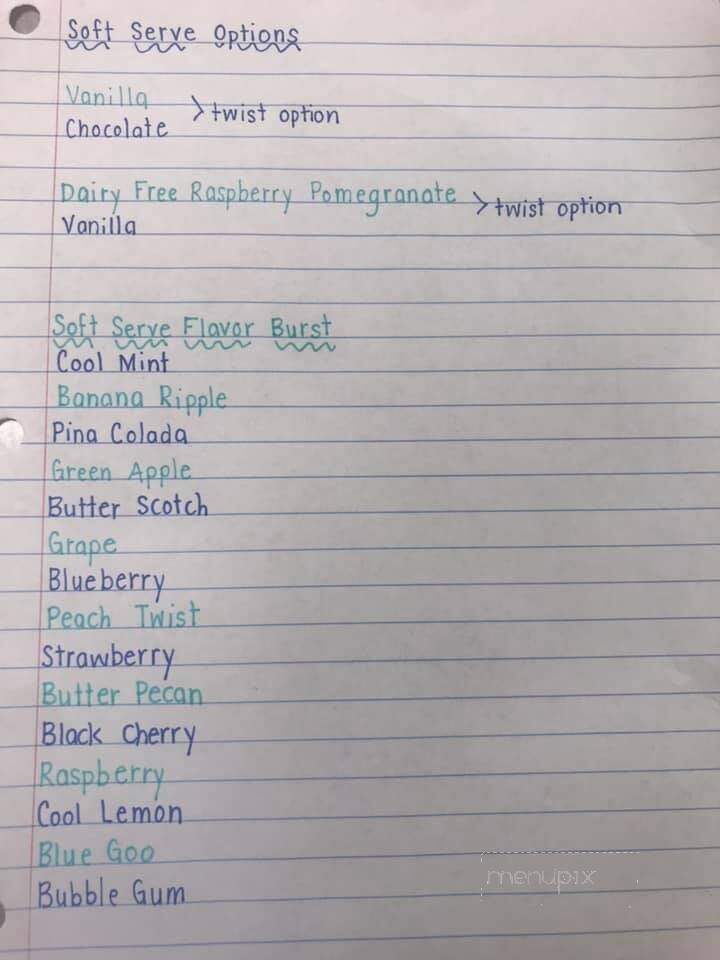 Soft Serve Options
Vanilla
Chocolate > twist option
Dairy Free Raspberry Pomegranate
Vanilla > twist option
Soft Serve Flavor Burst
Cool Mint
Banana Ripple
Pina Colada
Green Apple
Butter Scotch
Grape
Blueberry
Peach Twist
Strawberry
Butter Pecan
Black Cherry
Raspberry
Cool Lemon
Blue Goo
Bubble Gum
menupix